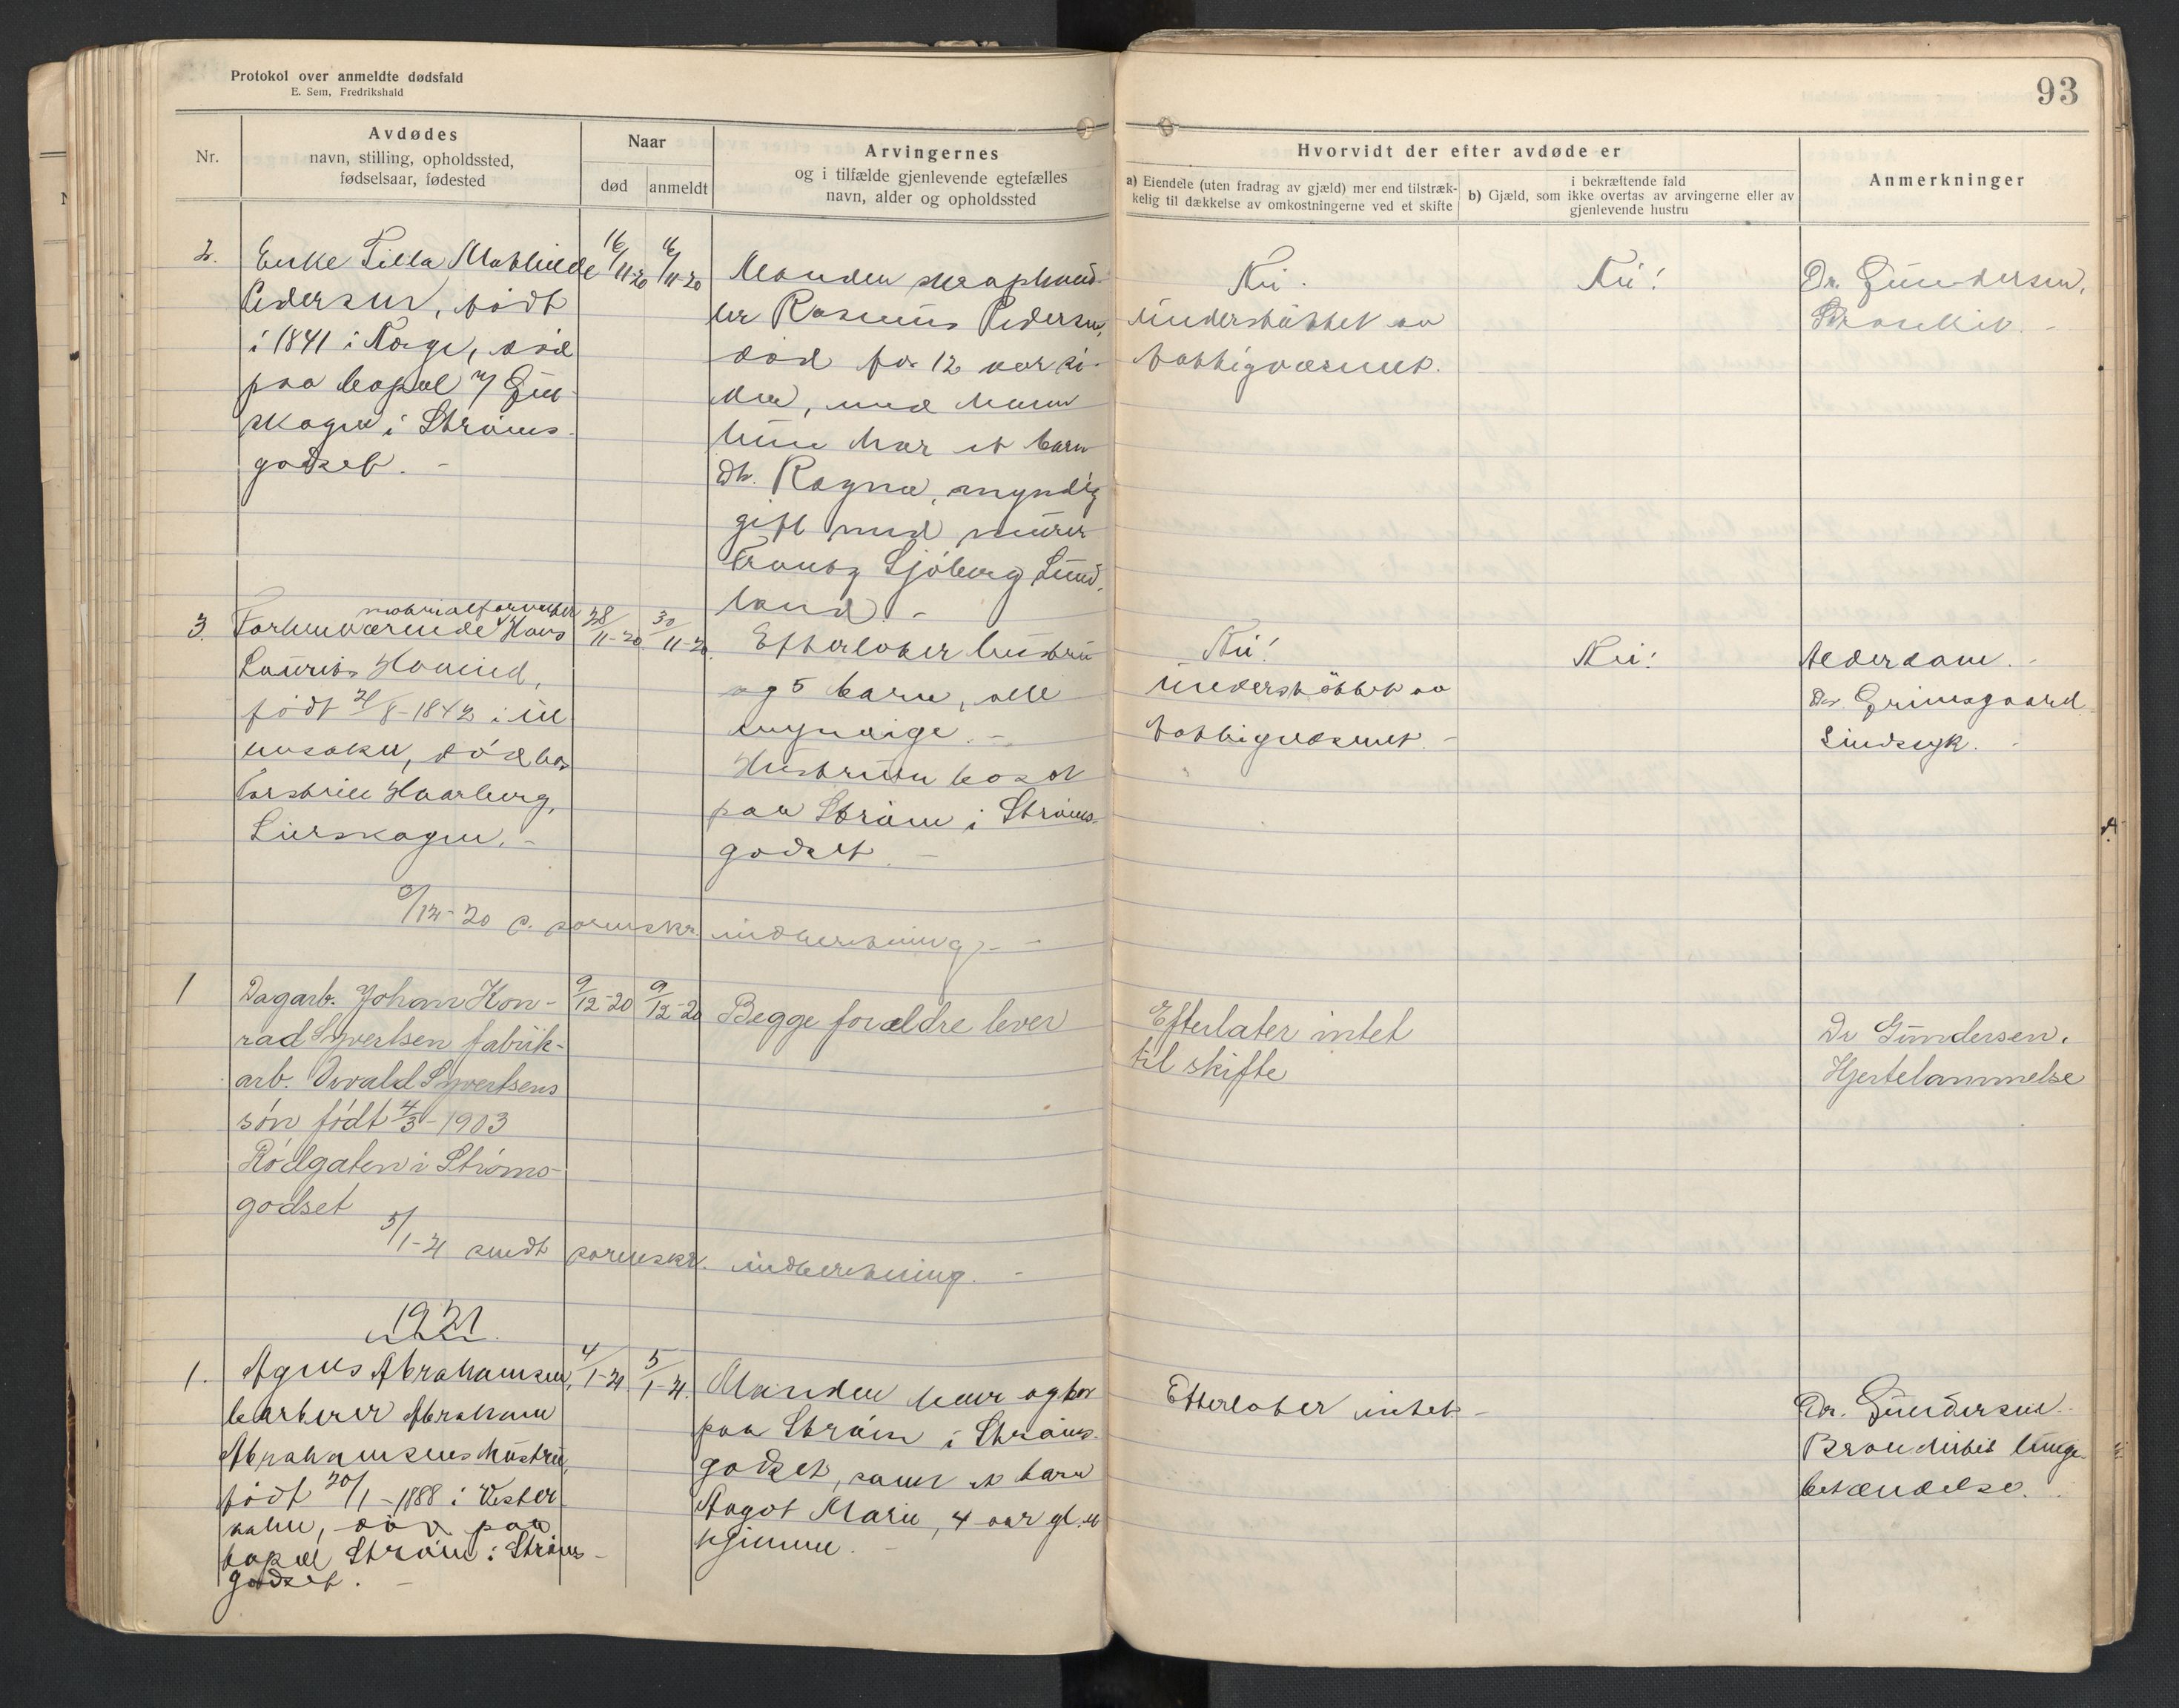 Protokol over anmeldte dødsfald
E. Sem, Fredrikshald
93
Nr.
Avdødes
navn, stilling, opholdssted,
fødselsaar, fødested
Naar
død
anmeldt
Arvingernes
og i tilfælde gjenlevende egtefælles
navn, alder og opholdssted
Hvorvidt der efter avdøde er
a) Eiendele (uten fradrag av gjæld) mer end tilstræk-
kelig til dækkelse av omkostningerne ved et skifte
i bekræftende fald
b) Gjæld, som ikke overtas av arvingerne eller av
gjenlevende hustru
Anmerkninger
2.
Enke Tilla Mathilde
Pedersen, født
i 1841 i Norge, død
paa bopæl
skogen i Strøms-
godset. -
16/11-20
16/11-20
Manden skraphand-
ler Rasmus Pedersen,
død for 12 aar si-
den, med ham
hun har et barn
Dt. Ragna, myndig
gift med murer
Frantz Sjöberg Sund-
land. -
Nei.
understøttet av
fattigvæsenet.
Nei!
Dr. Gundersen.
3.
materialforvalter
Forhenværende Hans
Laurits
født 21/8-1842 i Ul-
lensaker, død hos
Torstein Haarberg,
Lierskogen. -
28/11-20.
30/11-20.
Efterlater hustru
og 5 barn, alle
myndige. -
Hustruen bosat
paa Strøm i Strøms-
godset. -
Nei!
understøttet av
fattigvæsenet. -
Nei!
Alderdom. -
Dr. Grimsgaard
Sindssyk. -
/12-20 s. sorenskr. indberetning. -
1
Dagarb. Johan Kon-
rad Syvertsen fabrik-
arb. Osvald Syvertsens
søn født 4/3-1903
Rødgaten i Strøms-
godset
9/12-20
9/12-20
Begge forældre lever
Efterlater intet
til skifte
Dr Gundersen.
Hjertelammelse
5/1-21 sendt sorenskr. indberetning. -
1921.
1.
Agnes Abrahamsen,
barberer Abraham
Abrahamsens hustru,
født 20/1-1888 i Vester
aalen, død paa
bopæl Strøm i Strøms-
godset. -
4/1-21
5/1-21.
Manden lever og bor
paa Strøm i Strøms-
godset, samt et barn
Aagot Marie, 4 aar gl.
hjemme. -
Efterlater intet -
Dr. Gundersen.
Bronchitis lunge-
betændelse.